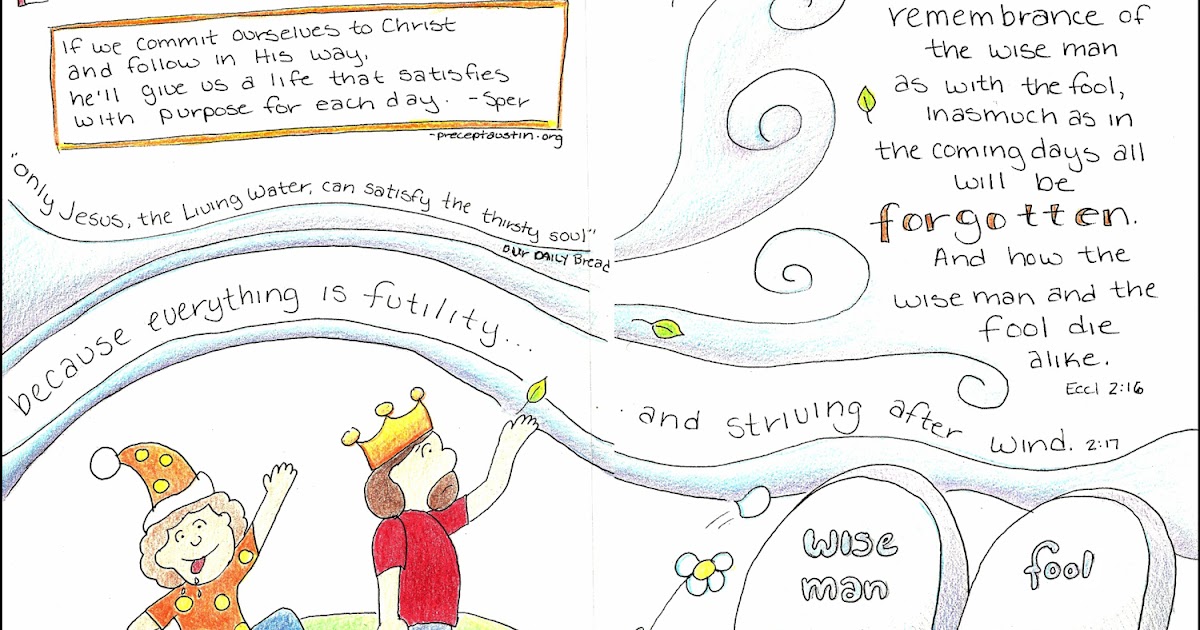 If we commit ourselves to Christ
and follow in His way,
he'll give us a life that satisfies
with purpose for each day. - Sper
-preceptaustin.org
"only Jesus, the Living Water, can satisfy the thirsty soul"
OUR DAILY Bread
because everything is futility...
remembrance of
the wise man
as with the fool,
Inasmuch as in
the coming days all
will be
forgotten.
And how the
wise man and the
fool die
alike.
Eccl 2:16
...and striving after wind. 2:17
wise
man
fool